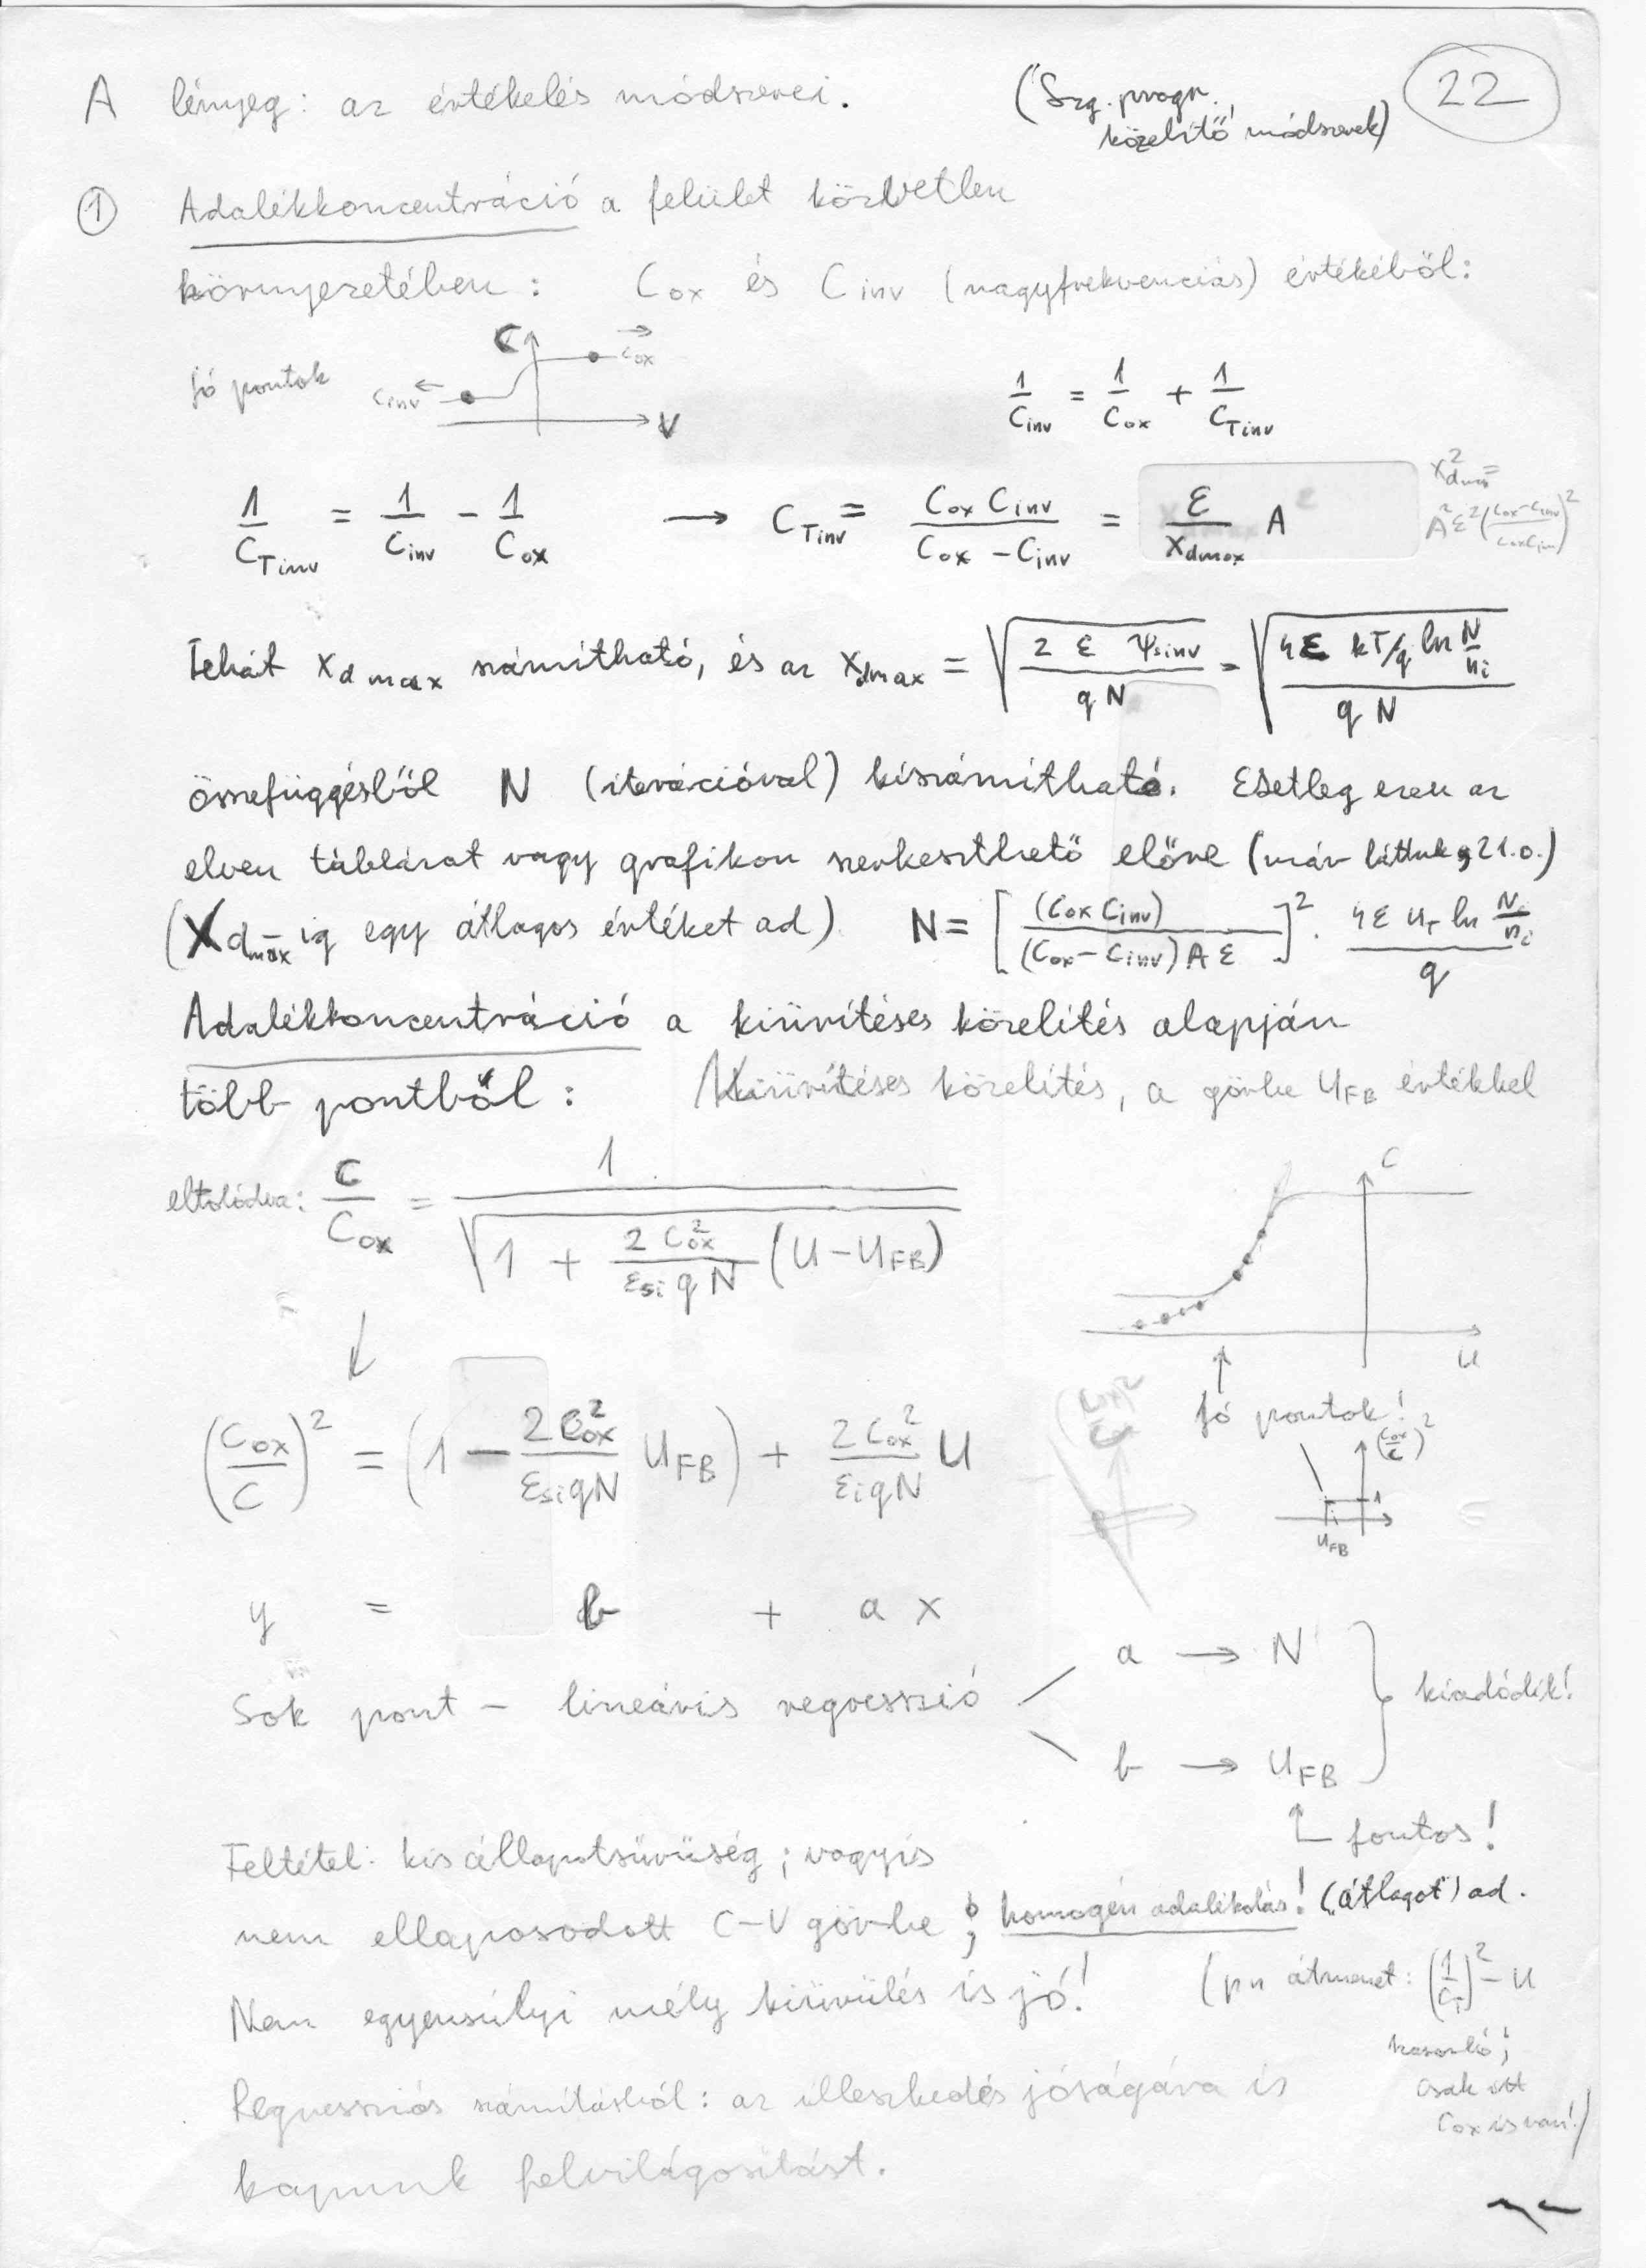 A lényeg: az értékelés módszerei. (Szg. progr., közelítő módszerek) 22
① Adalékkoncentráció a felület közvetlen
környezetében: Cox és Cinv (nagyfrekvenciás) értékéből:
Jó pontok
C
Cox
Cinv
V
1/Cinv = 1/Cox + 1/CTinv
1/CTinv = 1/Cinv - 1/Cox → CTinv = Cox Cinv / (Cox - Cinv) = ε/xdmax A
x²dmax = A²ε² ((Cox-Cinv)/(CoxCinv))²
Tehát xdmax számítható, és az xdmax = √(2 ε ψsinv / qN) = √(4ε kT/q ln N/ni / qN)
összefüggésből N (iterációval) kiszámítható. Esetleg ezen az
elven táblázat vagy grafikon szerkeszthető előre (már láttuk, 21.o.)
(Xdmax-ig egy átlagos értéket ad) N = [(Cox Cinv) / (Cox - Cinv) A ε]² · 4ε UT ln N/ni / q
Adalékkoncentráció a kiürítéses közelítés alapján
több pontból: Kiürítéses közelítés, a görbe UFB értékkel
eltolódva: C/Cox = 1 / √(1 + 2Cox²/(εsi q N) (U - UFB))
C
U
↓
Jó pontok!
(Cox/C)² = (1 - 2Cox²/(εsi q N) UFB) + 2Cox²/(εi q N) U
(Cox/C)²
1
UFB
y = b + a x
Sok pont - lineáris regresszió
a → N
b → UFB
kiadódik!
fontos!
Feltétel: kis állapotsűrűség; vagyis
nem ellaposodott C-V görbe; homogén adalékolás! (átlagot) ad.
Nem egyensúlyi mély kiürülés is jó!
(pn átmenet: (1/CT)² - U
hasonló;
csak itt
Cox is van!)
Regressziós számításból: az illeszkedés jóságára is
kapunk felvilágosítást.